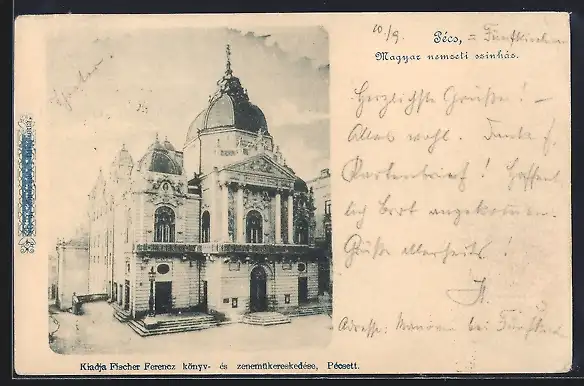 10/9.
Pécs, = Fünfkirchen
Magyar nemzeti szinház.
Herzlichste Grüße! —
Alles wohl. Danke f.
Kartenbrief! Hoffent
lich Brot angekommen.
Grüße allerseits!
Adresse: bei Fünfkirch
Kiadja Fischer Ferencz könyv- és zeneműkereskedése, Pécsett.